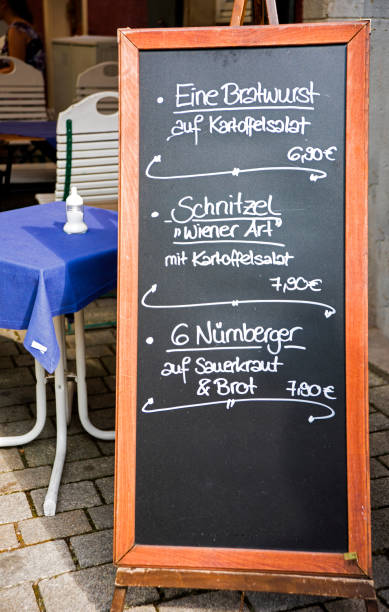 • Eine Bratwurst
auf Kartoffelsalat
6,90€
• Schnitzel
"Wiener Art"
mit Kartoffelsalat
7,90€
• 6 Nürnberger
auf Sauerkraut
& Brot 7,80€